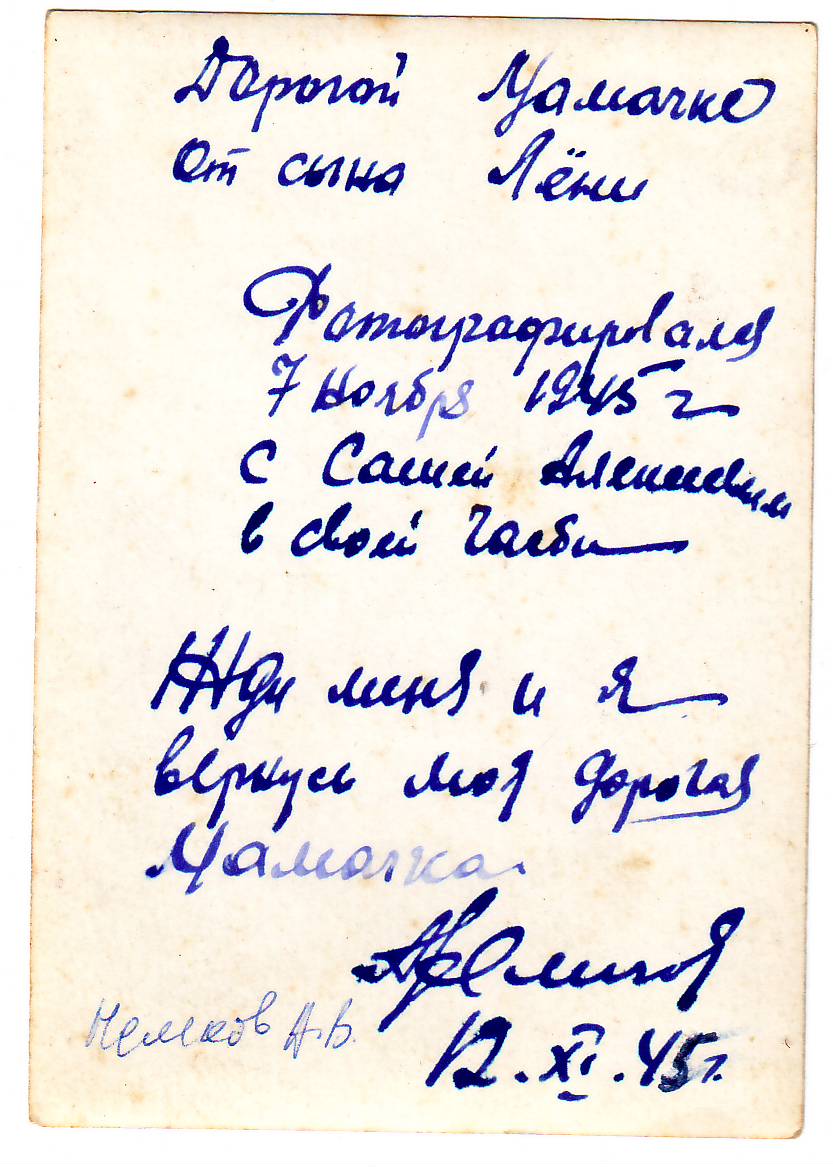 Дорогой Мамочке
от сына Лёни
Фотографировался
7 ноября 1945 г
с Сашей
в своей части
Жди меня и я
вернусь моя дорогая
Мамочка.
А.В.
12.XI.45г.